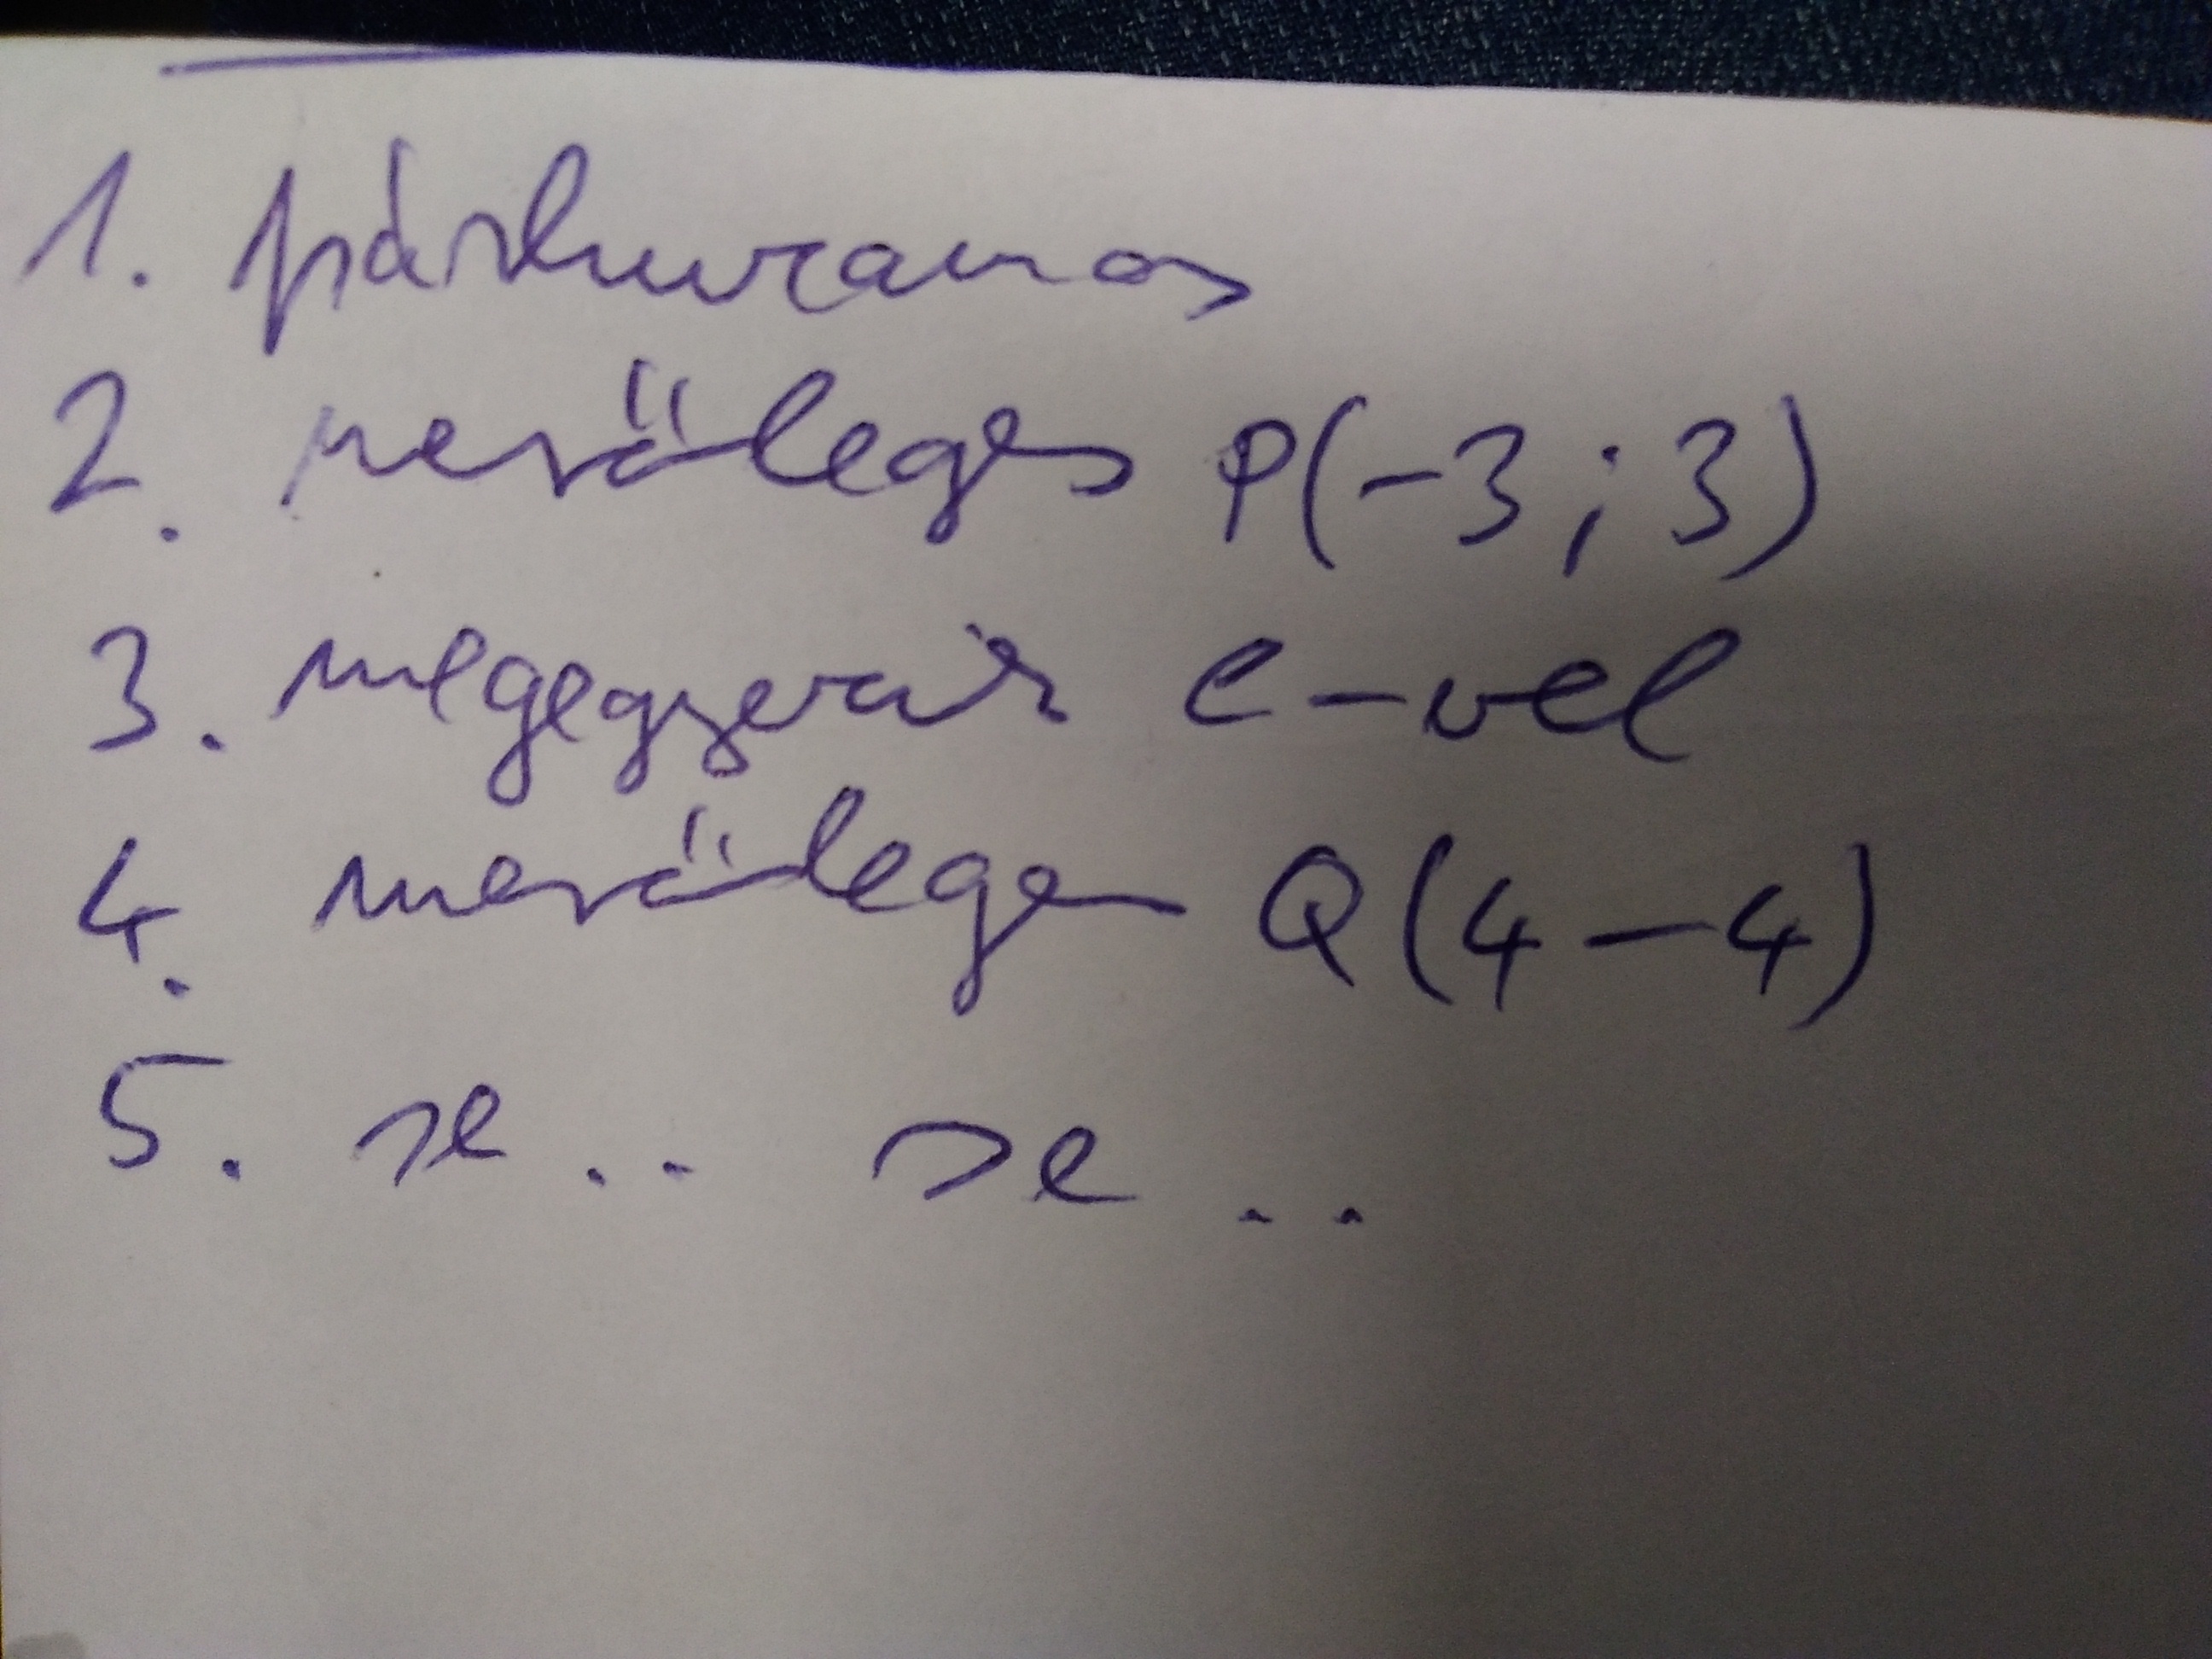 1. párhuzamos
2. merőleges P(-3; 3)
3. megegyezik e-vel
4. merőleges Q(4 -4)
5. se.. se..